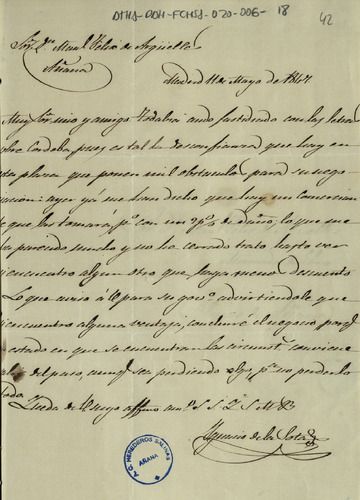 DMHS-DOH-FCHSS-020-006-18
42
Sor. Dn. Manl. Felix de Arguiella
Añana
Madrid 11 de Mayo de 1847.
Muy Sor. mio y amigo todabia ando fastidiado con las letras
sobre Cordoba, pues es tal la desconfianza que hay en
esta plaza que ponen mil obstaculos para su nego
ciacion: ayer ya me han dicho que hay un comercian
te que las tomará, po. con un 2 p% de daño, lo que me
ha parecido mucho y no he cerrado trato hasta ver
si encuentro algun otro que haga menos descuento.
Lo que aviso á V. para su govo. advirtiendole que
si encuentro alguna ventaja, concluiré el negocio porq.
el estado en que se encuentran las circunsts. conviene
salir del paso, aunq. sea perdiendo algo, pa. no perderlo
todo.
Queda de V. suyo affmo. am. S. S. Q. S. M. B.
Ygnacio de la
T. G. HEREDEROS SALINAS
AÑANA